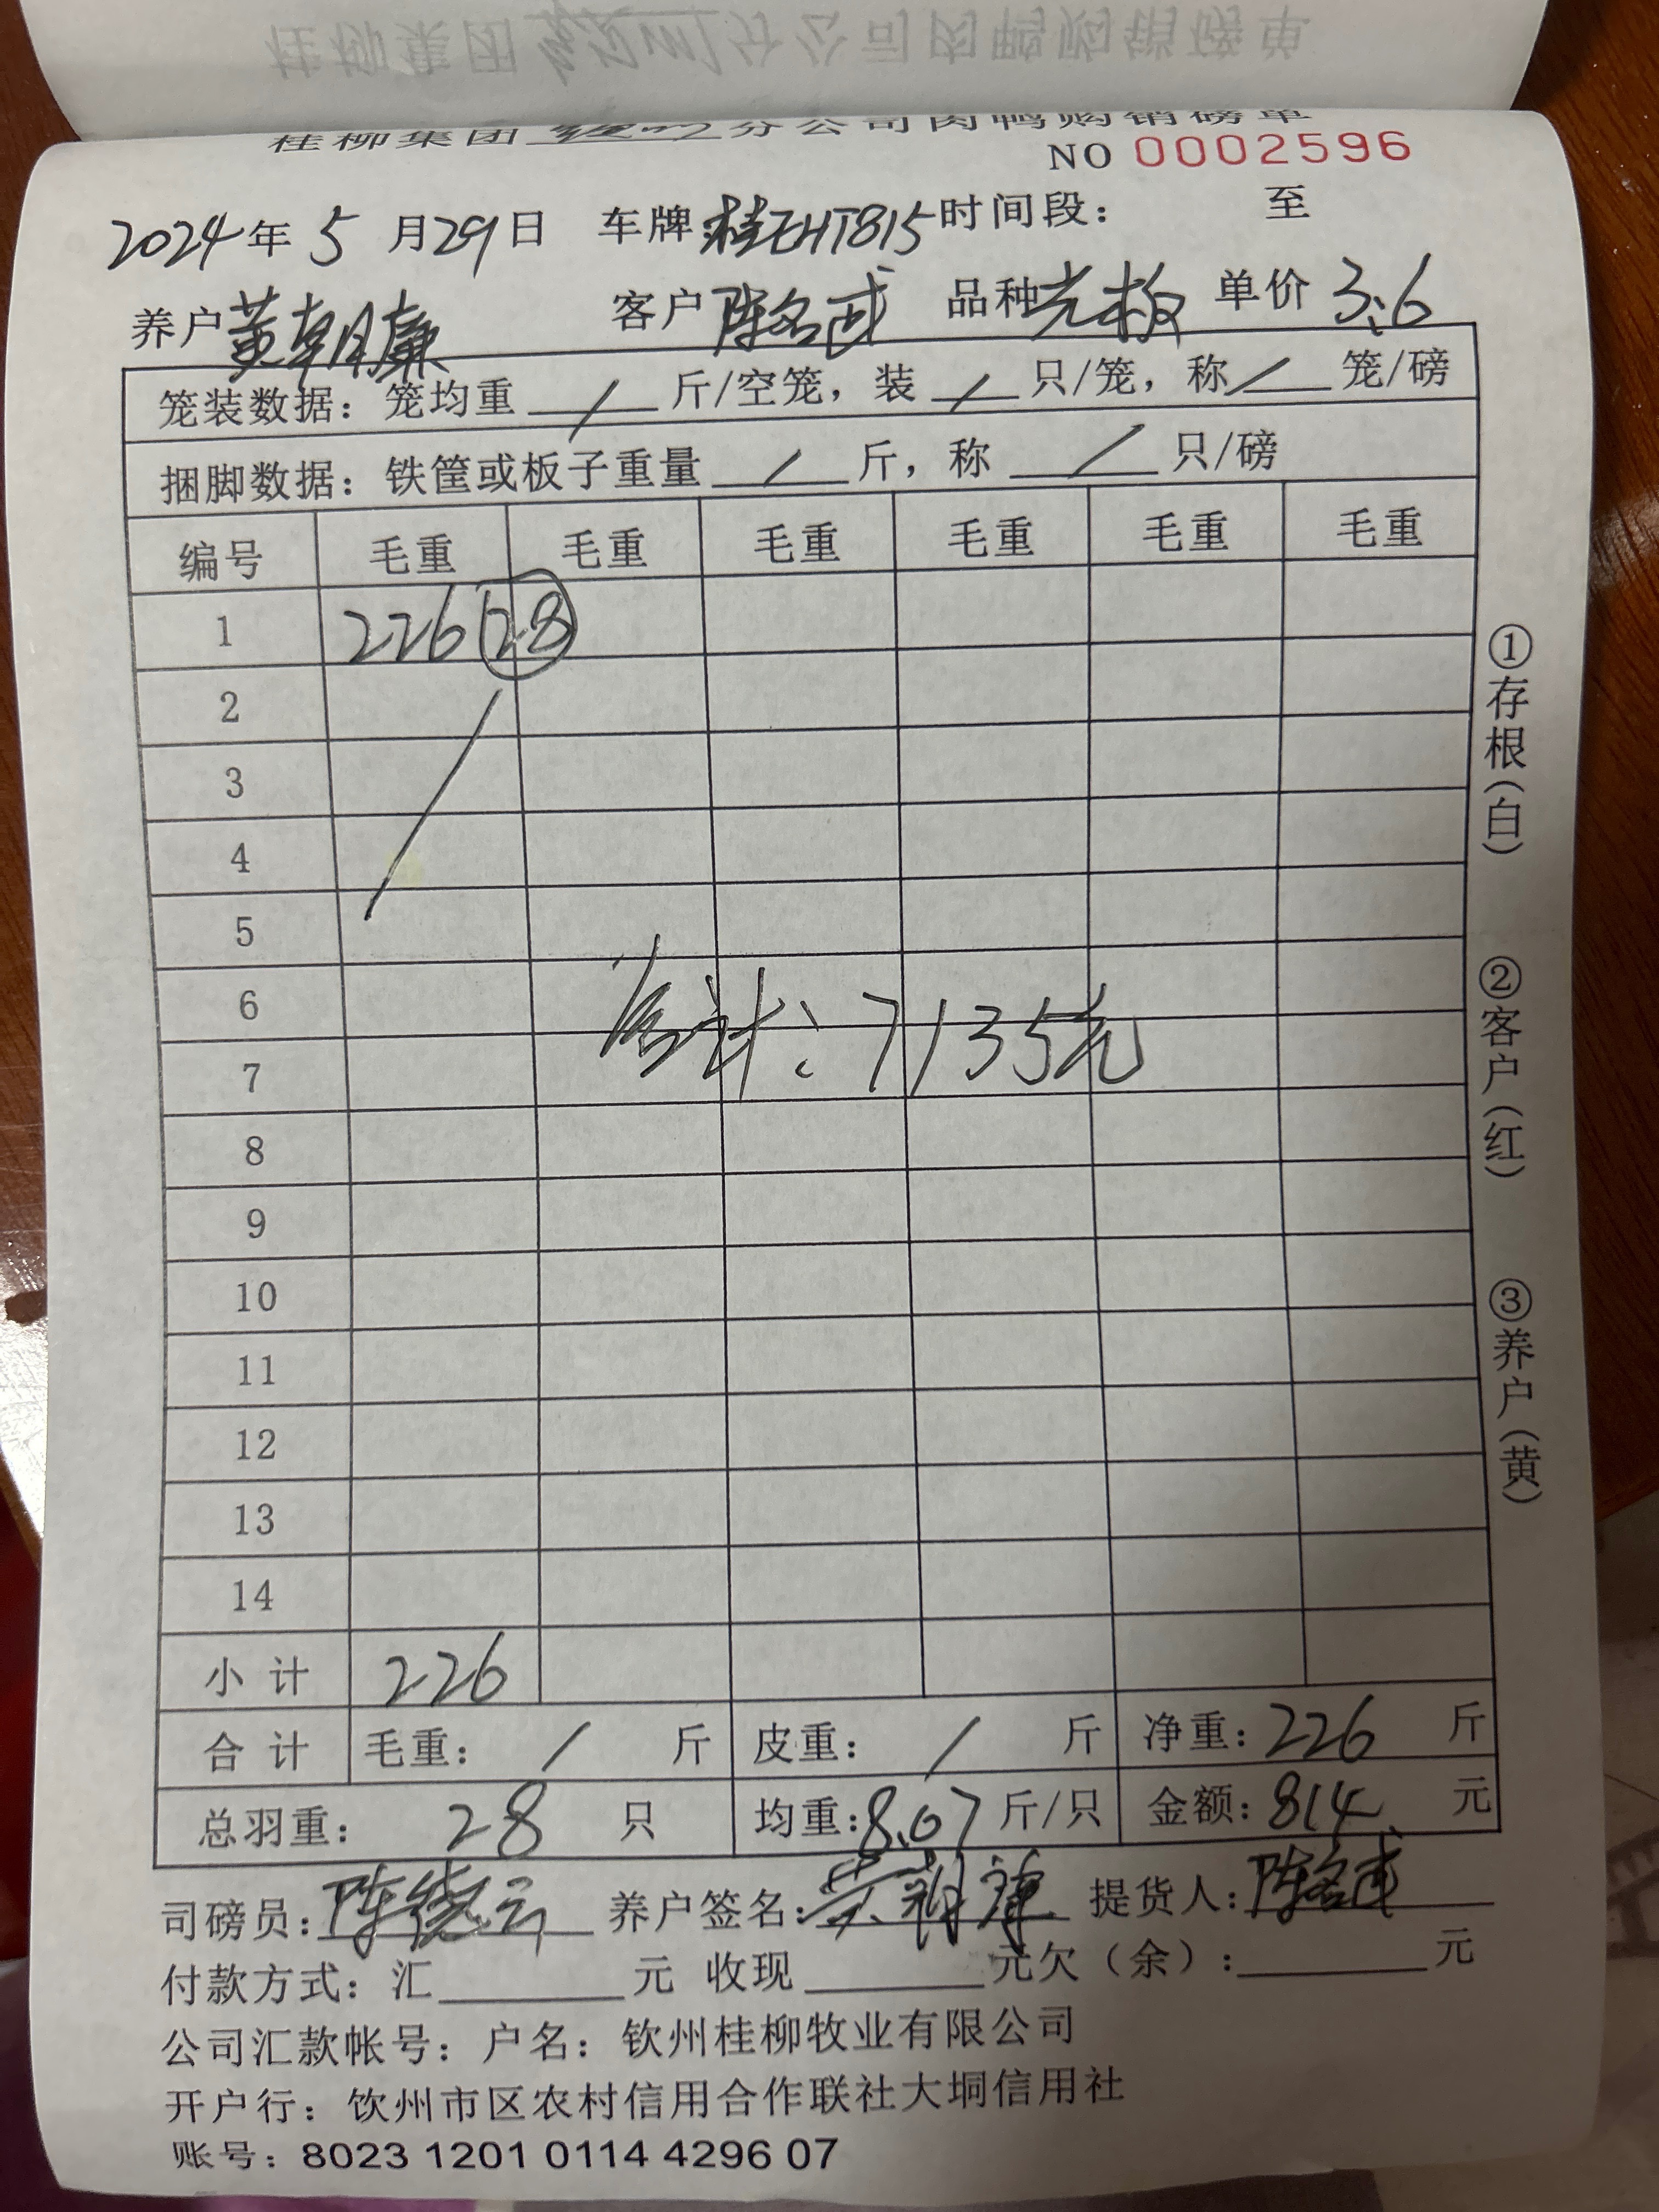 桂柳集团 分公司肉鸭购销磅单
NO 0002596
2024年5月29日 车牌:桂EHT815 时间段: 至
养户 黄朝廉 客户 陈名成 品种 光板 单价 3.6
笼装数据: 笼均重 / 斤/空笼, 装 / 只/笼, 称 / 笼/磅
捆脚数据: 铁筐或板子重量 / 斤, 称 / 只/磅
编号 毛重 毛重 毛重 毛重 毛重 毛重
1 226 28
2
3
4
5
6
合计: 7135元
7
8
9
10
11
12
13
14
小计 226
合计 毛重: / 斤 皮重: / 斤 净重: 226 斤
总羽重: 28 只 均重: 8.07 斤/只 金额: 814 元
司磅员: 陈绕云 养户签名: 提货人: 陈名成
付款方式: 汇 元 收现 元欠(余): 元
公司汇款帐号: 户名: 钦州桂柳牧业有限公司
开户行: 钦州市区农村信用合作联社大垌信用社
账号: 8023 1201 0114 4296 07
①存根(白)
②客户(红)
③养户(黄)